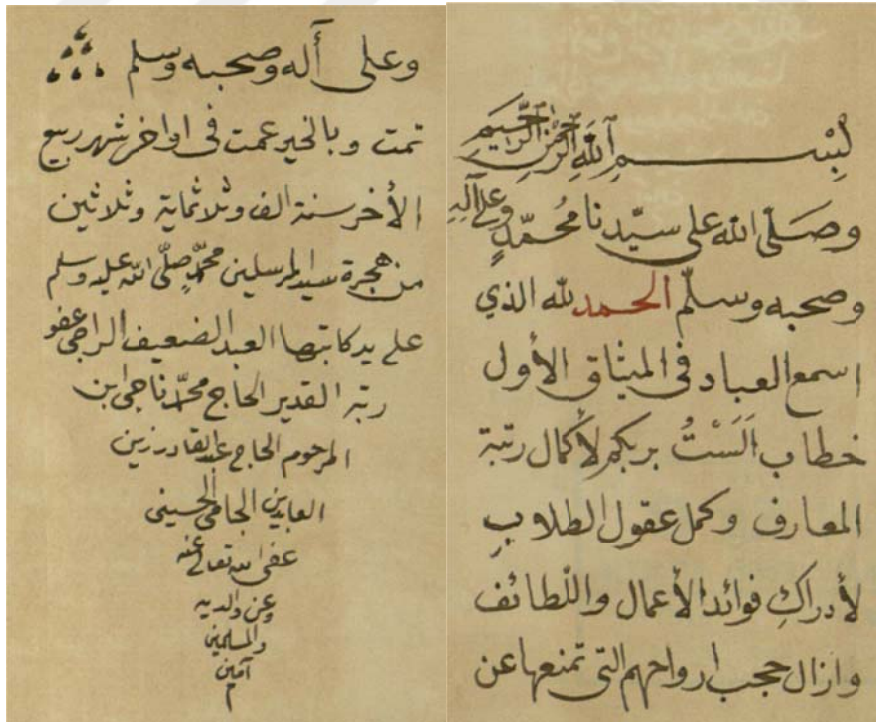 بسم الله الرحمن الرحيم
وصلّى الله على سيّدنا محُمّدٍ وعلى آلهِ
وصحبه وسلّم الحمد لله الذي
اسمع العباد فى الميثاق الأول
خطاب اَلَسْتُ بربكم لأكمال رتبة
المعارف وكمل عقول الطلابِ
لأدراكِ فوائد الأعمال واللّطائف
وازال حجب ارواحهم التى تمنعها عن
وعلى أٓله وصحبه وسلم
تمت وبالخير عمت فى اواخر شهر ربيع
الأخر سنة الف وثلاثماية وثلاثين
من هجرة سيد المرسلين محمّدٍ صلّى الله عليه وسلم
على يد كاتبها العبد الضعيف الراجى عفو
ربّه القدير الحاج محمّد ناجى ابن
المرحوم الحاج عبد القادر زين
العابدين الجامى الحسينى
عفى الله تعالى عنه
وعن والديه
والمسلمين
آمين
م